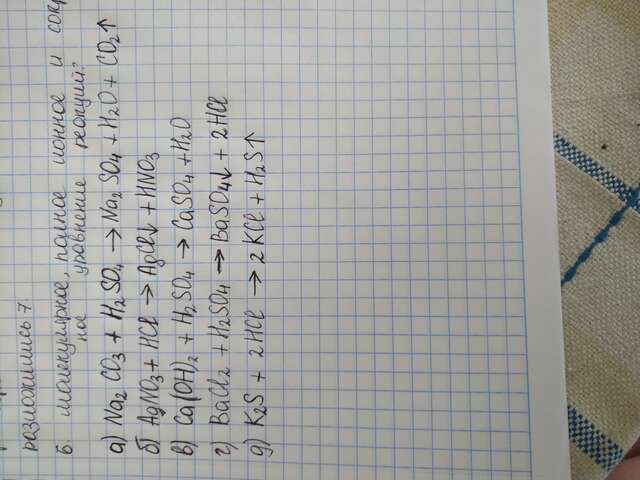 разложились 7.
6. молекулярное, полное ионное и сокр
ное уравнение реакций:
а) Na₂CO₃ + H₂SO₄ → Na₂SO₄ + H₂O + CO₂↑
б) AgNO₃ + HCl → AgCl↓ + HNO₃
в) Ca(OH)₂ + H₂SO₄ → CaSO₄ + H₂O
г) BaCl₂ + H₂SO₄ → BaSO₄↓ + 2HCl
д) K₂S + 2HCl → 2KCl + H₂S↑